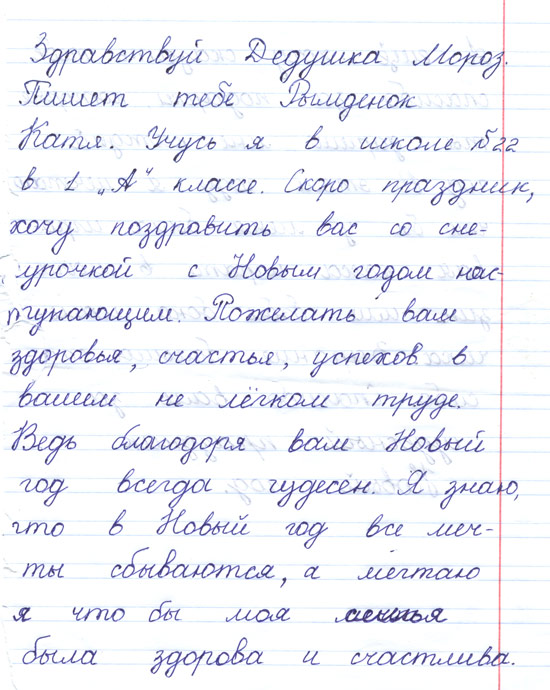 Здравствуй Дедушка Мороз.
Пишет тебе Рымденок
Катя. Учусь я в школе №22
в 1 „А“ классе. Скоро праздник,
хочу поздравить вас со сне-
урочкой с Новым годом нас-
тупающим. Пожелать вам
здоровья, счастья, успехов в
вашем не лёгком труде.
Ведь благодоря вам Новый
год всегда чудесен. Я знаю,
что в Новый год все меч-
ты сбываются, а мечтаю
я что бы моя семья
была здорова и счастлива.